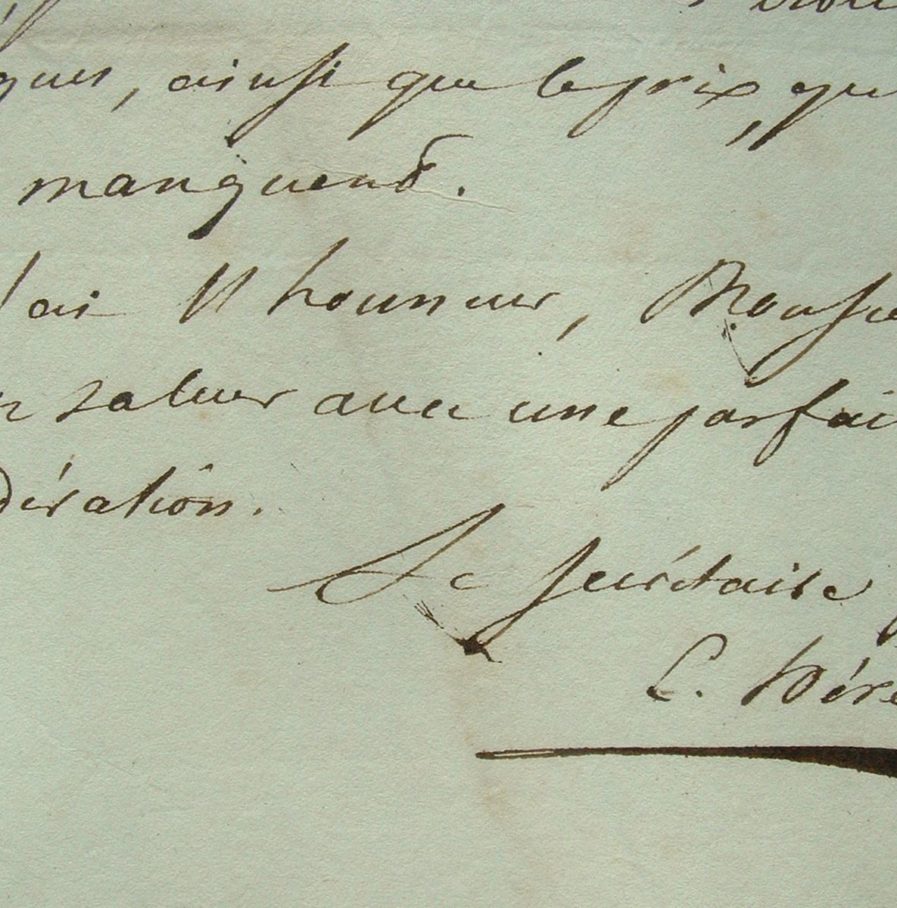 ques, ainsi que le prix, qu
manquent.
J'ai l'honneur, Monsie
saluer avec une parfai
dération.
Le Secrétaire
C. Hér